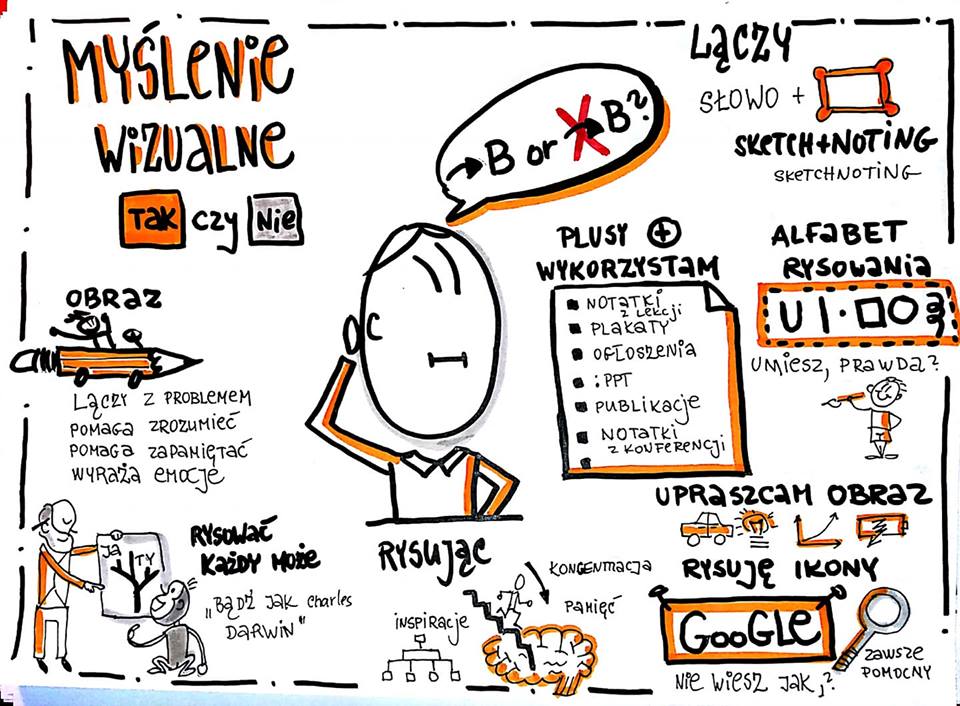 MYŚLENIE
WIZUALNE
TAK czy NIE
→B or →B?
ŁĄCZY
SŁOWO +
SKETCH+NOTING
SKETCHNOTING
OBRAZ
ŁĄCZY Z PROBLEMEM
POMAGA ZROZUMIEĆ
POMAGA ZAPAMIĘTAĆ
WYRAŻA EMOCJE
PLUSY +
WYKORZYSTAM
NOTATKI
Z LEKCJI
PLAKATY
OGŁOSZENIA
:PPT
PUBLIKACJE
NOTATKI
Z KONFERENCJI
ALFABET
RYSOWANIA
UMIESZ, PRAWDA?
RYSOWAĆ
KAŻDY MOŻE
„BĄDŹ JAK CHARLES
DARWIN"
JA
TY
RYSUJĄC
KONCENTRACJA
PAMIĘĆ
INSPIRACJE
UPRASZCAM OBRAZ
RYSUJĘ IKONY
GOOGLE
NIE WIESZ JAK,?
ZAWSZE
POMOCNY